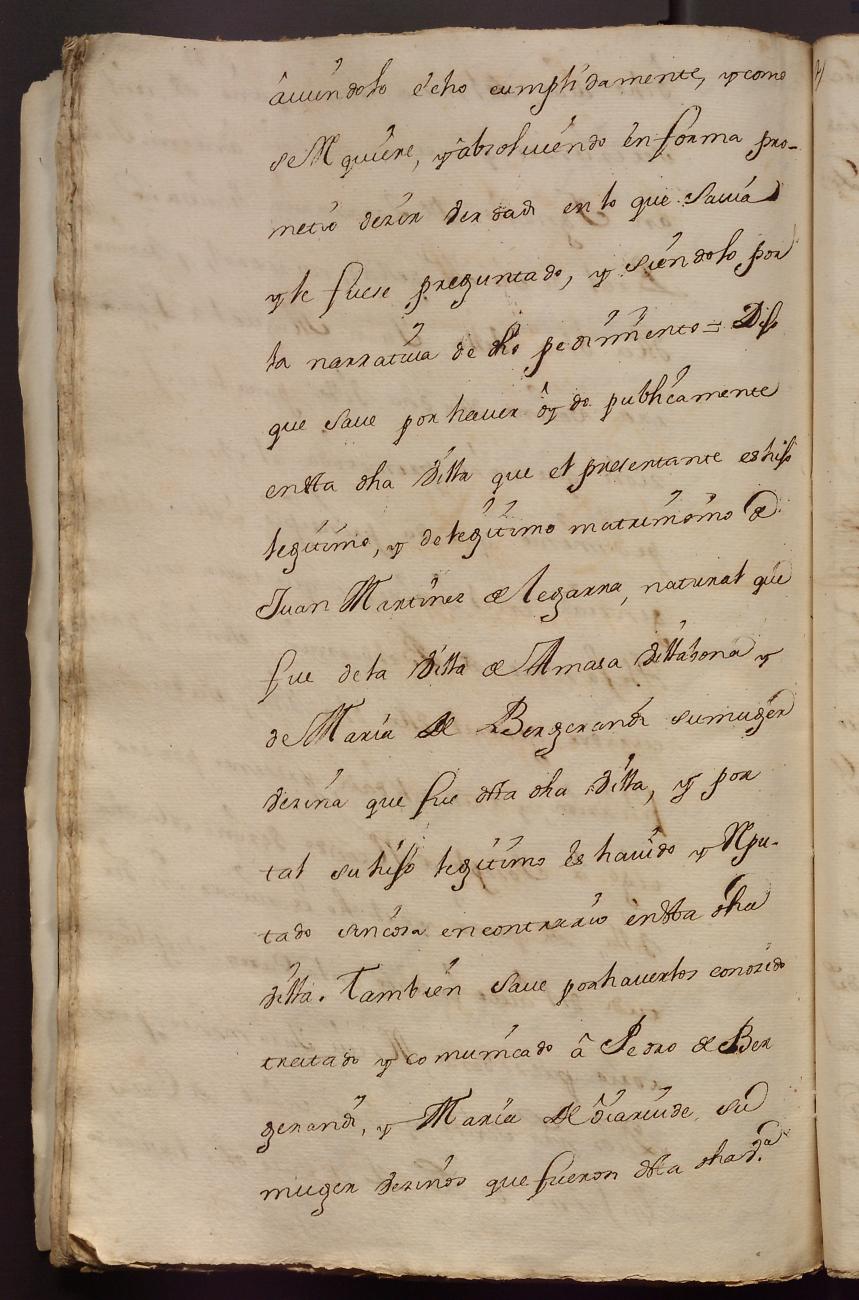 âuiéndolo écho cumplidamente, y como
se Rquiére, y âbsoluiéndo én forma pro-
metió dezir Verdad en lo que Sauía
y le fuese preguntado, y siéndolo por
la narratiua de dho pedimiento = Dijo
que Saue por hauer ôydo publicamente
en dtta dha Villa que el presentante es hijo
legítimo, y de legítimo matrimonio de
Juan Martinez de Legarra, natural que
fue de la Villa de Amasa Villabona y
de María de Bergerandi su muger
Vezina que fue dtta dha Villa, y por
tal su hijo legítimo és hauido y Rpu-
tado sin cosa en contrario én dtta dha
Villa. También Saue por hauerlos conozido
tratado y comunicado â Pedro de Ber
gerandi, y María de ôiariude su
muger Vezinos que fueron dtta dha V.ª